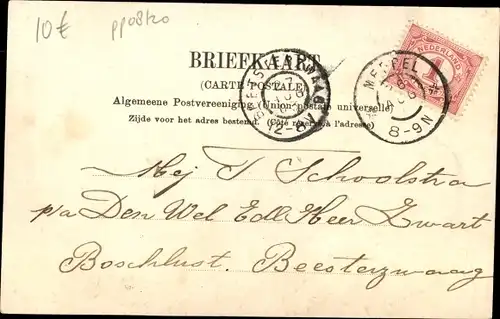 10€ pp08120
NEDERLAND
BRIEFKAART
(CARTE POSTALE)
Algemeene Postvereeniging (Union postale universelle)
Zijde voor het adres bestemd. (Côté réservé à l'adresse)
MEPPEL
8-9N
12-8V
Mej T Schoolstra
p/a Den Wel Edl Heer Zwart
Boschlust. Beesterzwaag